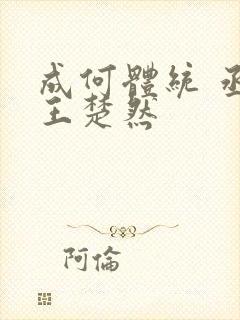 成何體統 丞
王楚然
阿倫